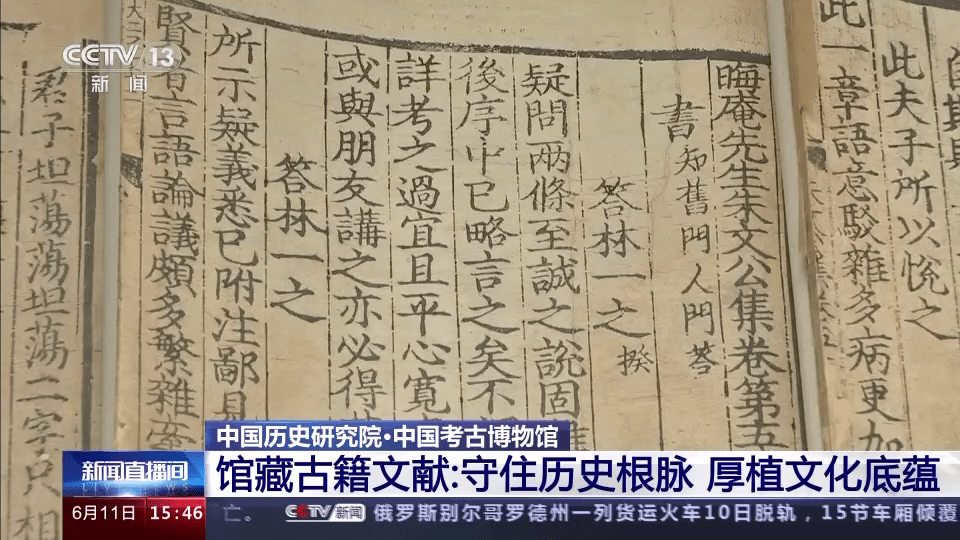 CCTV 13
新闻
此夫子所以悅之
此一章語意駁雜多病更加
晦庵先生朱文公集卷第五
書知舊門人問荅
荅林一之揆
疑問兩條至誠之說固
後序中已略言之矣不
詳考之過宜且平心寬
或與朋友講之亦必得
荅林一之
所示疑義悉已附注鄙見
賢者言語論議頗多繁雜
君子坦蕩蕩坦蕩二字只相
中国历史研究院·中国考古博物馆
新闻直播间
馆藏古籍文献:守住历史根脉 厚植文化底蕴
6月11日 15:46
亡。 CCTV新闻 俄罗斯别尔哥罗德州一列货运火车10日脱轨，15节车厢倾覆